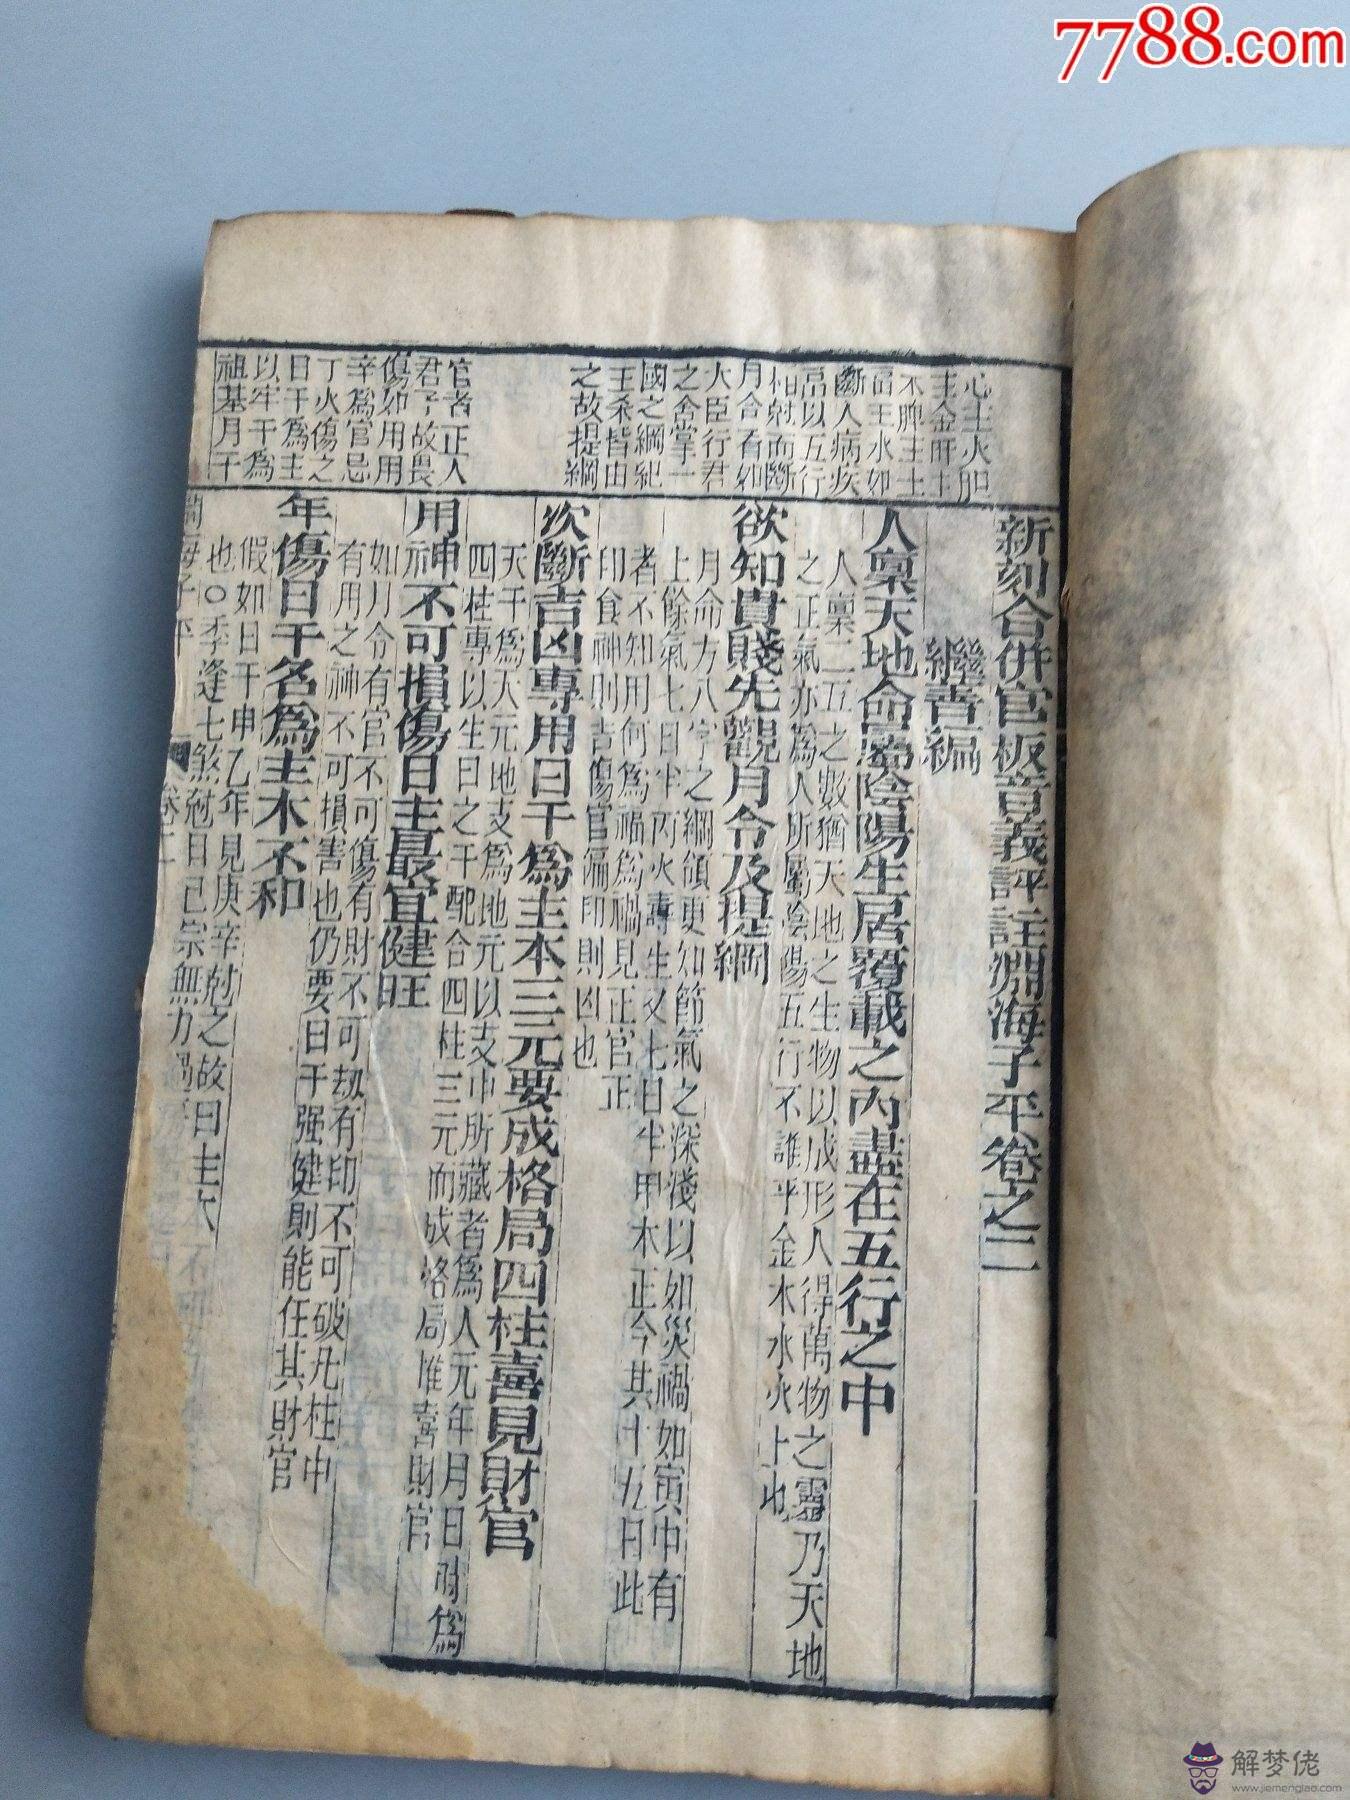 7788.com
心主火胆
主金肝主
木脾主土
腎主水如
斷人病疾
亦以五行
相尅而斷
月令者如
大臣行君
之舍掌一
國之綱紀
王桑皆由
之故提綱
官者正人
君子故畏
傷如用用
辛為官忌
丁火傷之
日干為主
以年干為
祖基月干
新刻合併官板音義評註淵海子平卷之二
繼善編
人稟天地命屬陰陽生居覆載之內盡在五行之中
人稟二五之數猶天地之生物以成形人得萬物之靈乃天地
之正氣亦為人所屬陰陽五行不離乎金木水火土也
欲知貴賤先觀月令及提綱
月命方八字之綱領更知節氣之深淺以如災禍如寅中有
上餘氣七日半丙火壽生又七日半甲木正令其十五日此
者不知用何為福為禍見正官正
印食神則吉傷官偏印則凶也
次斷吉凶專用日干為主本三元要成格局四柱喜見財官
天干為天元地支為地元以支中所藏者為人元年月日時為
四柱專以生日之干配合四柱三元而成格局惟喜財官
用神不可損傷日主最宜健旺
如月令有官不可傷有財不可劫有印不可破凡柱中
有用之神不可損害也仍要日干强健則能任其財官
年傷日干名為主木不和
假如日干甲乙年見庚辛尅之故曰主本
也○季逢七煞尅日己宗無力
海子平
卷二
解梦佬
www.jiemenglao.com